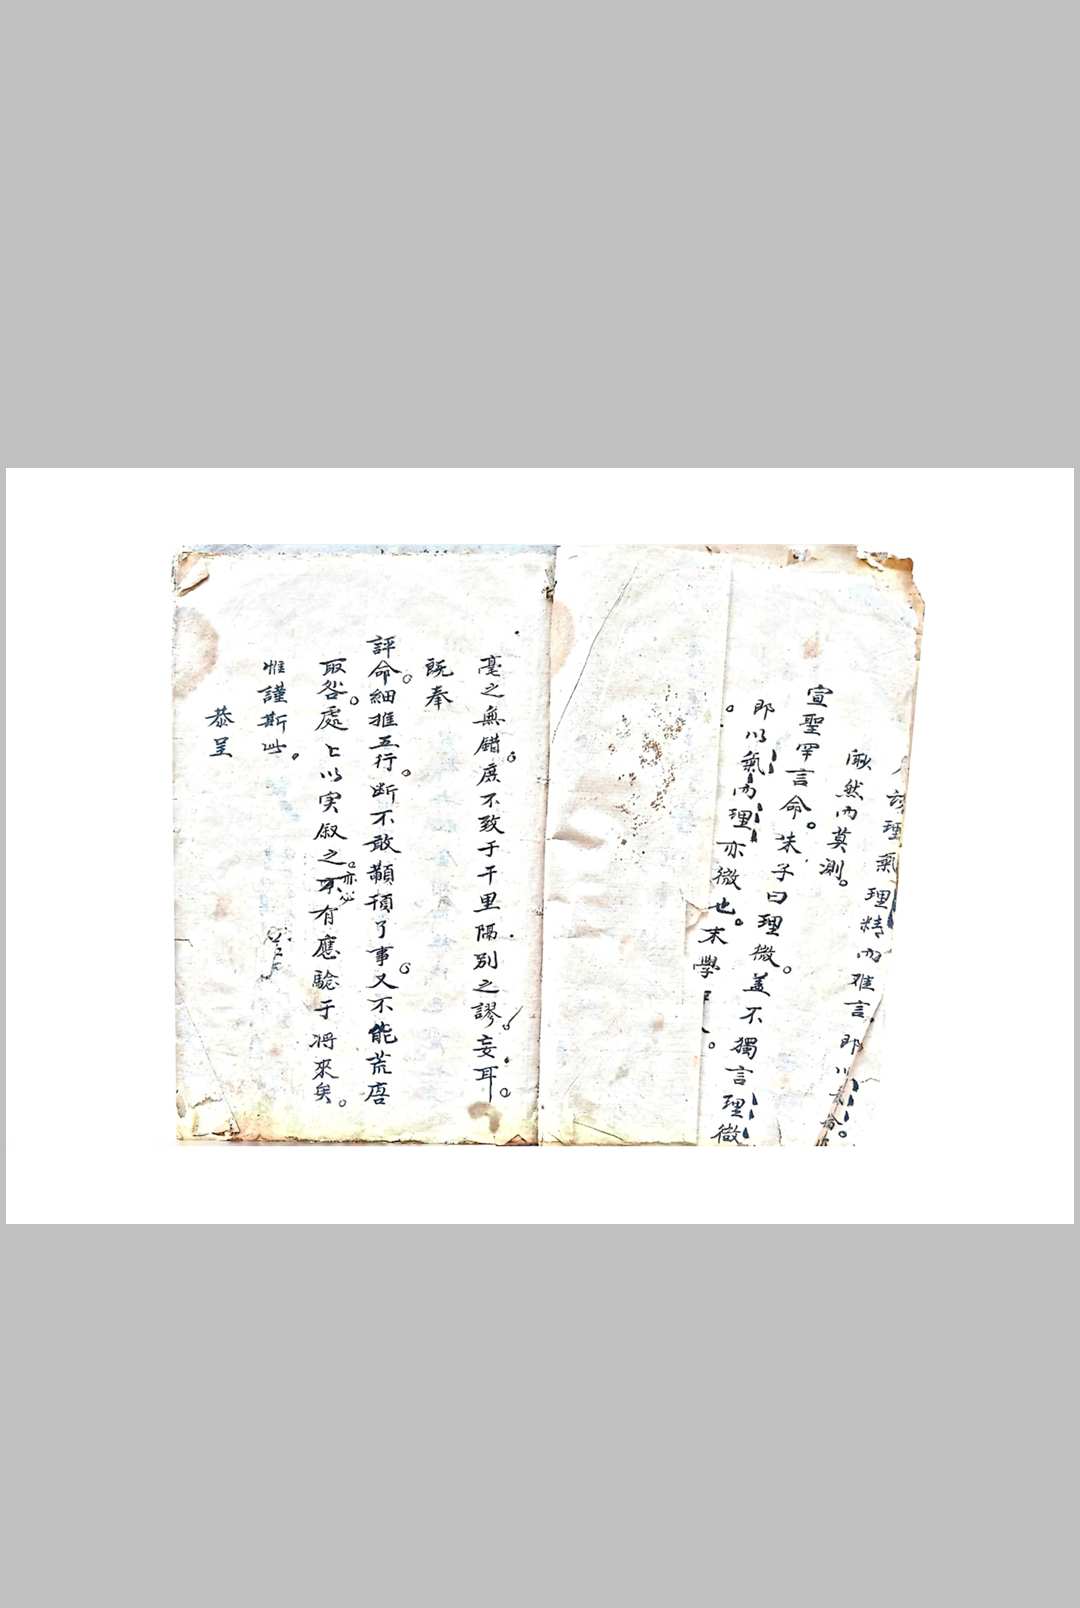 理氣理精而难言即以
淵然而莫測。
宣聖罕言命。朱子曰理微。盖不獨言理微
即以氣而理亦微也。末學
毫之無錯。庶不致于千里隔別之謬。妄耳。
既奉
評命。細推五行。断不敢顢頇了事。又不能荒唐
取咎。處上以实叙之。亦必有應驗于将來矣。
惟謹斯此。
恭呈